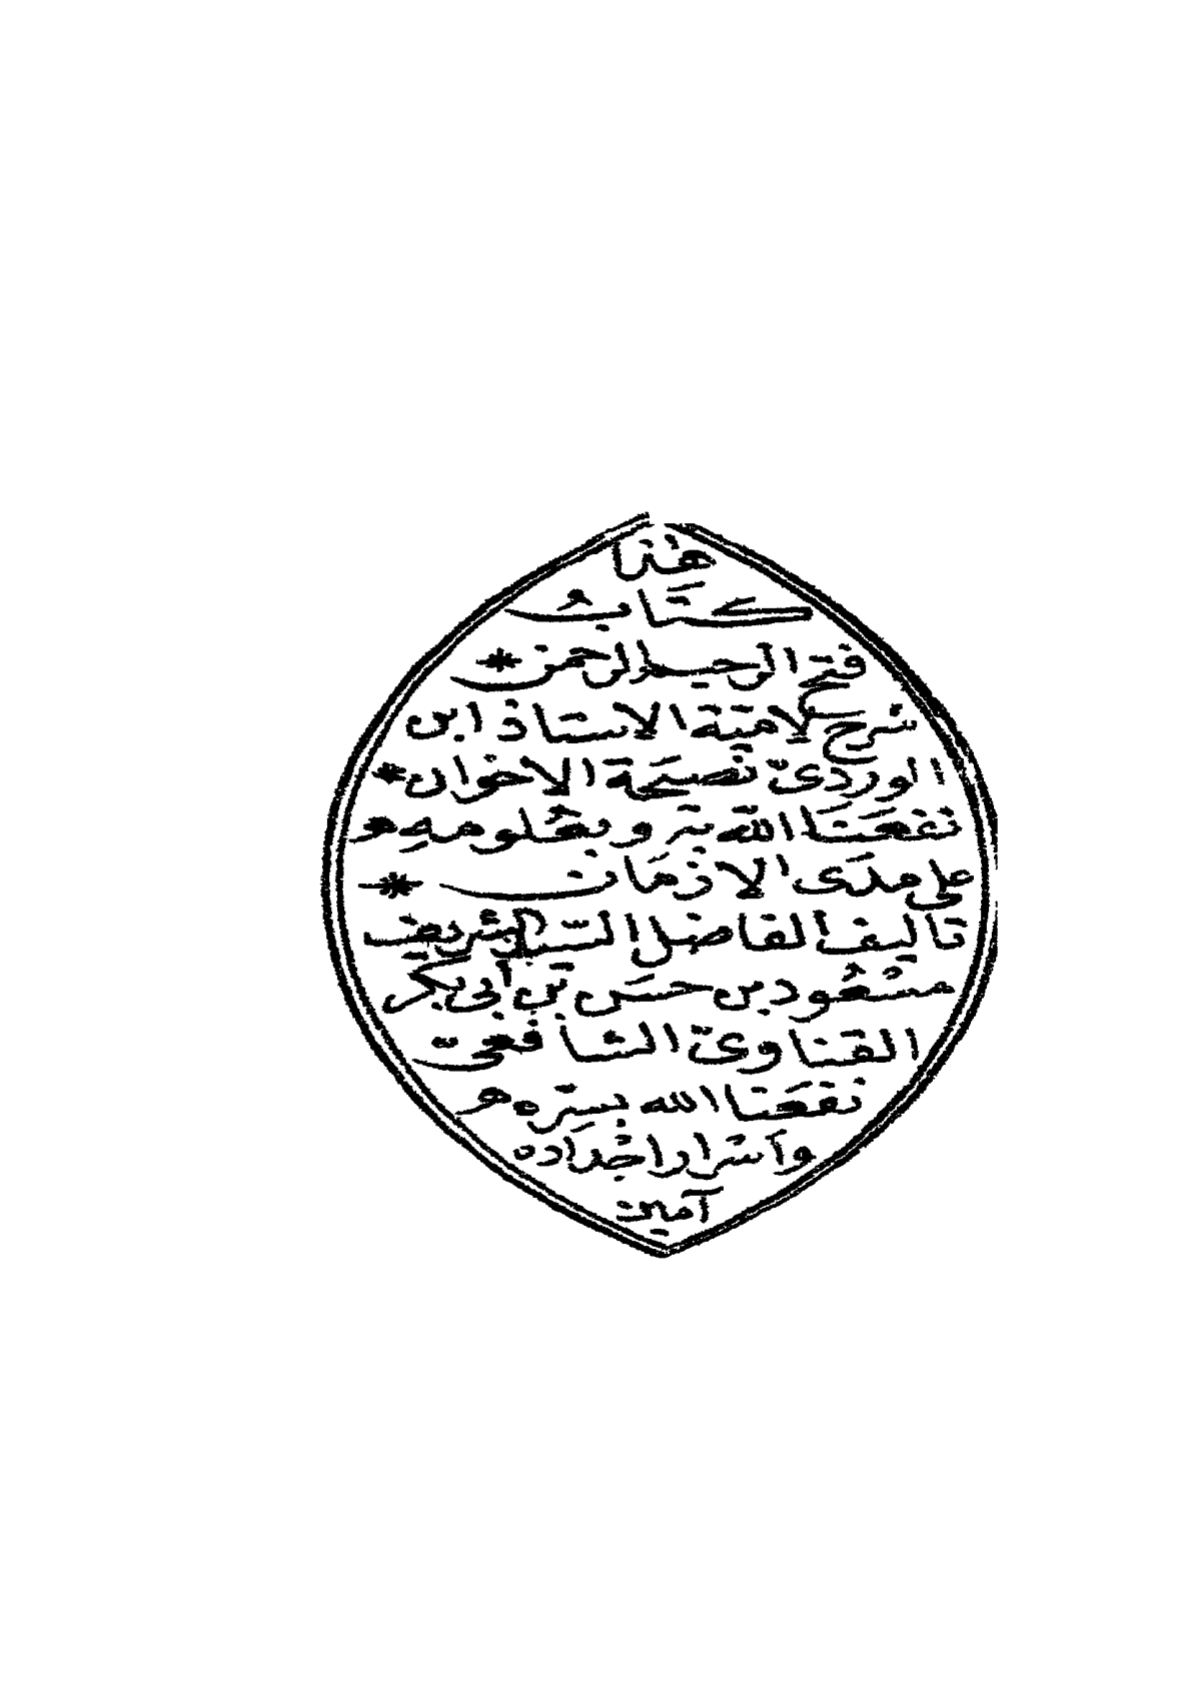 هٰذا
كتَابُ
فتح الرحيم الرحمن *
شرح لامية الاستاذ ابن
الوردىّ نصيحَة الاخوان *
نفعَنَا اللّه به وبعُلومهِ
على مدَى الازمَان *
تاليف الفاضل السّيّد الشريف
مسْعُود بن حسَن بن أبى بكر
القناوىّ الشافعىّ
نفعَنا الله بسِرّه
وأسْرار اجْدَاده
آمين